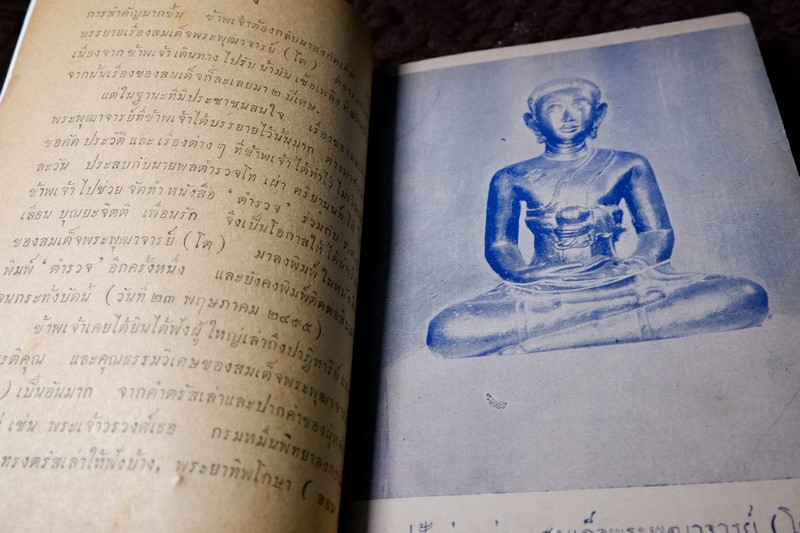 การสำคัญมากขึ้น ข้าพเจ้าต้องกลับมาสงกัดเดิม
บรรยายเรื่องสมเด็จพระพุฒาจารย์ (โต)
เนื่องจาก ข้าพเจ้า เดินทาง ไปรับ น้ำมัน เชื้อเพลิง
จากนั้นเรื่องของสมเด็จก็ละเลยมา ๒ ปีเศษ.
แต่ในฐานะที่มีประชาชนสนใจ เรื่องของ
พระพุฒาจารย์ที่ข้าพเจ้าได้บรรยายไว้นั้นมาก ต่างพา
ขอคัด ประวัติ และ เรื่องต่าง ๆ ที่ข้าพเจ้า ได้ทำไว้
ละวัน ประสบกับนายพลตำรวจโท เผ่า ศรียานนท์ ได้
ข้าพเจ้า ไปช่วย จัดทำ หนังสือ ‘ ตำรวจ’ ร่วมกับ ร.ต.อ.
เลื่อน บุณยะจิตติ เพื่อนรัก จึงเป็นโอกาสให้ ได้นำ
ของสมเด็จพระพุฒาจารย์ (โต) มาลงพิมพ์ ในหนัง
พิมพ์ ‘ตำรวจ’ อีกครั้งหนึ่ง และยังคงพิมพ์ติดต่อ
จนกระทั่งบัดนี้ (วันที่ ๒๓ พฤษภาคม ๒๔๙๕).
ข้าพเจ้าเคยได้ยินได้ฟังผู้ ใหญ่เล่าถึงปาฏิหาริย์
รติคุณ และคุณธรรมวิเศษของสมเด็จพระพุฒาจาร
) เป็นอันมาก จากคำตรัสเล่าและปากคำของ
เช่น พระเจ้าวรวงศ์เธอ กรมหมื่นพิทยาลง
ทรงตรัสเล่าให้ฟังบ้าง, พระยาทิพโกษา ( สอน
สมเด็จพระพุฒาจารย์ (โต